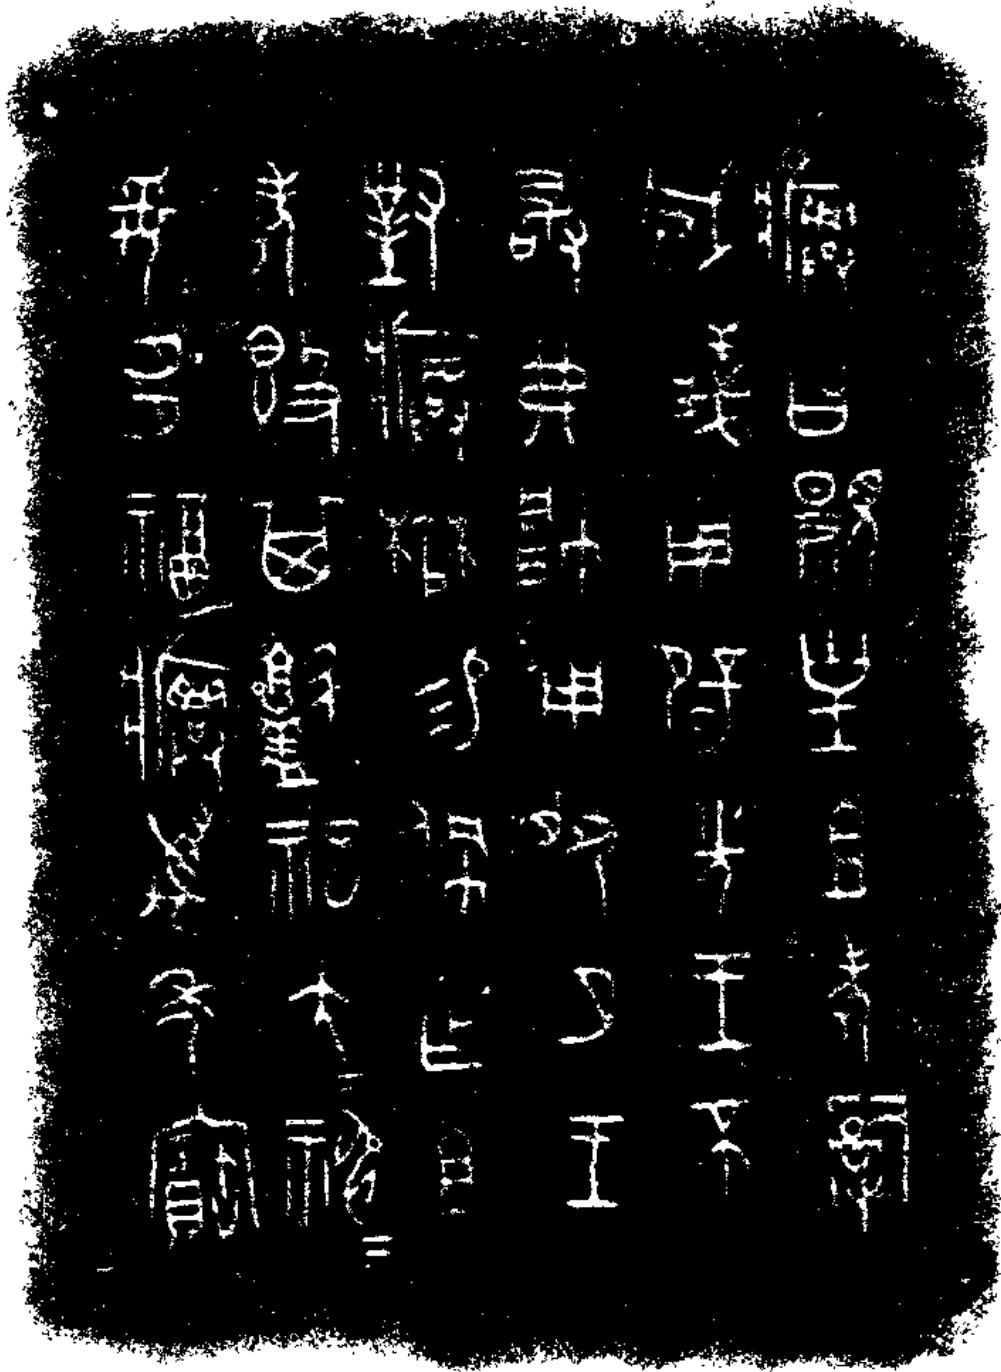 𤼈曰覭皇且考𤔲
威義用辟先王不
敢弗帥用夙夕王
對𤼈楙易佩乍且
考簋其𩰬祀大神＝
妥多福𤼈萬年寶